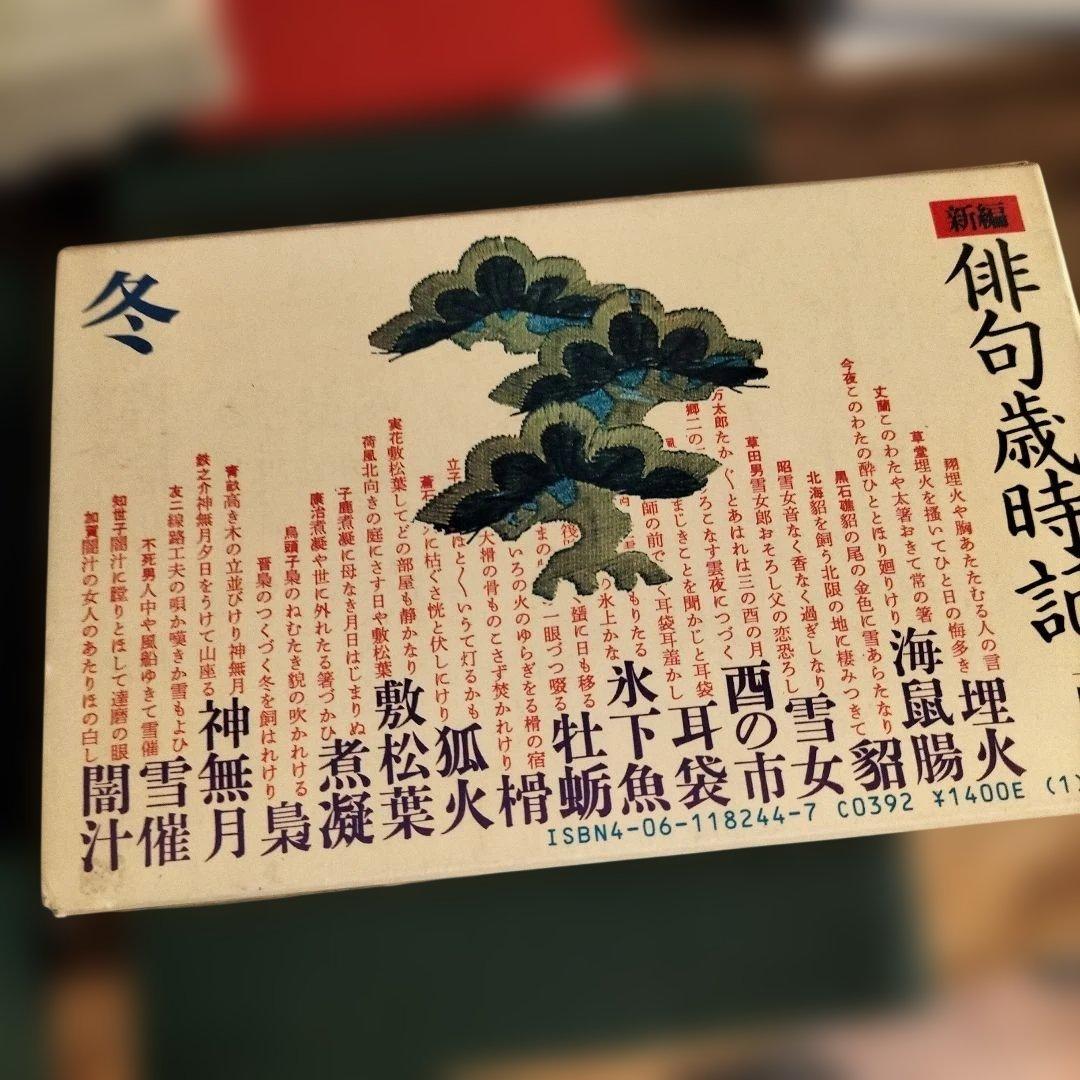 新編
俳句歳時記
冬
翔埋火や胸あたたむる人の言
草堂埋火を掻いてひと日の悔多き
埋火
丈蘭このわたや太箸おきて常の箸
今夜このわたの酔ひととほり廻りけり
海鼠腸
黒石礁貂の尾の金色に雪あらたなり
北海貂を飼う北限の地に棲みつきて
貂
昭雪女音なく香なく過ぎしなり
草田男雪女郎おそろし父の恋恐ろし
雪女
万太郎たか〲とあはれは三の酉の月
ろこなす雲夜につづく
酉の市
まじきことを聞かじと耳袋
師の前で く耳袋耳羞かし
耳袋
もりたる
の氷上かな
氷下魚
に日も移る
一眼づつ啜る
牡蛎
いろの火のゆらぎをる榾の宿
大榾の骨ものこさず焚かれけり
榾
ほと〱いうて灯るかも
に枯ぐさ恍と伏しにけり
狐火
実花敷松葉してどの部屋も静かなり
荷風北向きの庭にさす日や敷松葉
敷松葉
子鹿煮凝に母なき月日はじまりぬ
廉治煮凝や世に外れたる箸づかひ
煮凝
烏頭子梟のねむたき貌の吹かれける
晋梟のつくづく冬を飼はれけり
梟
青畝高き木の立並びけり神無月
鉄之介神無月夕日をうけて山座る
神無月
友二線路工夫の唄か嘆きか雪もよひ
不死男人中や風船ゆきて雪催
雪催
知世子闇汁に瞠りとほして達磨の眼
加賀闇汁の女人のあたりほの白し
闇汁
ISBN4-06-118244-7 C0392 ¥1400E